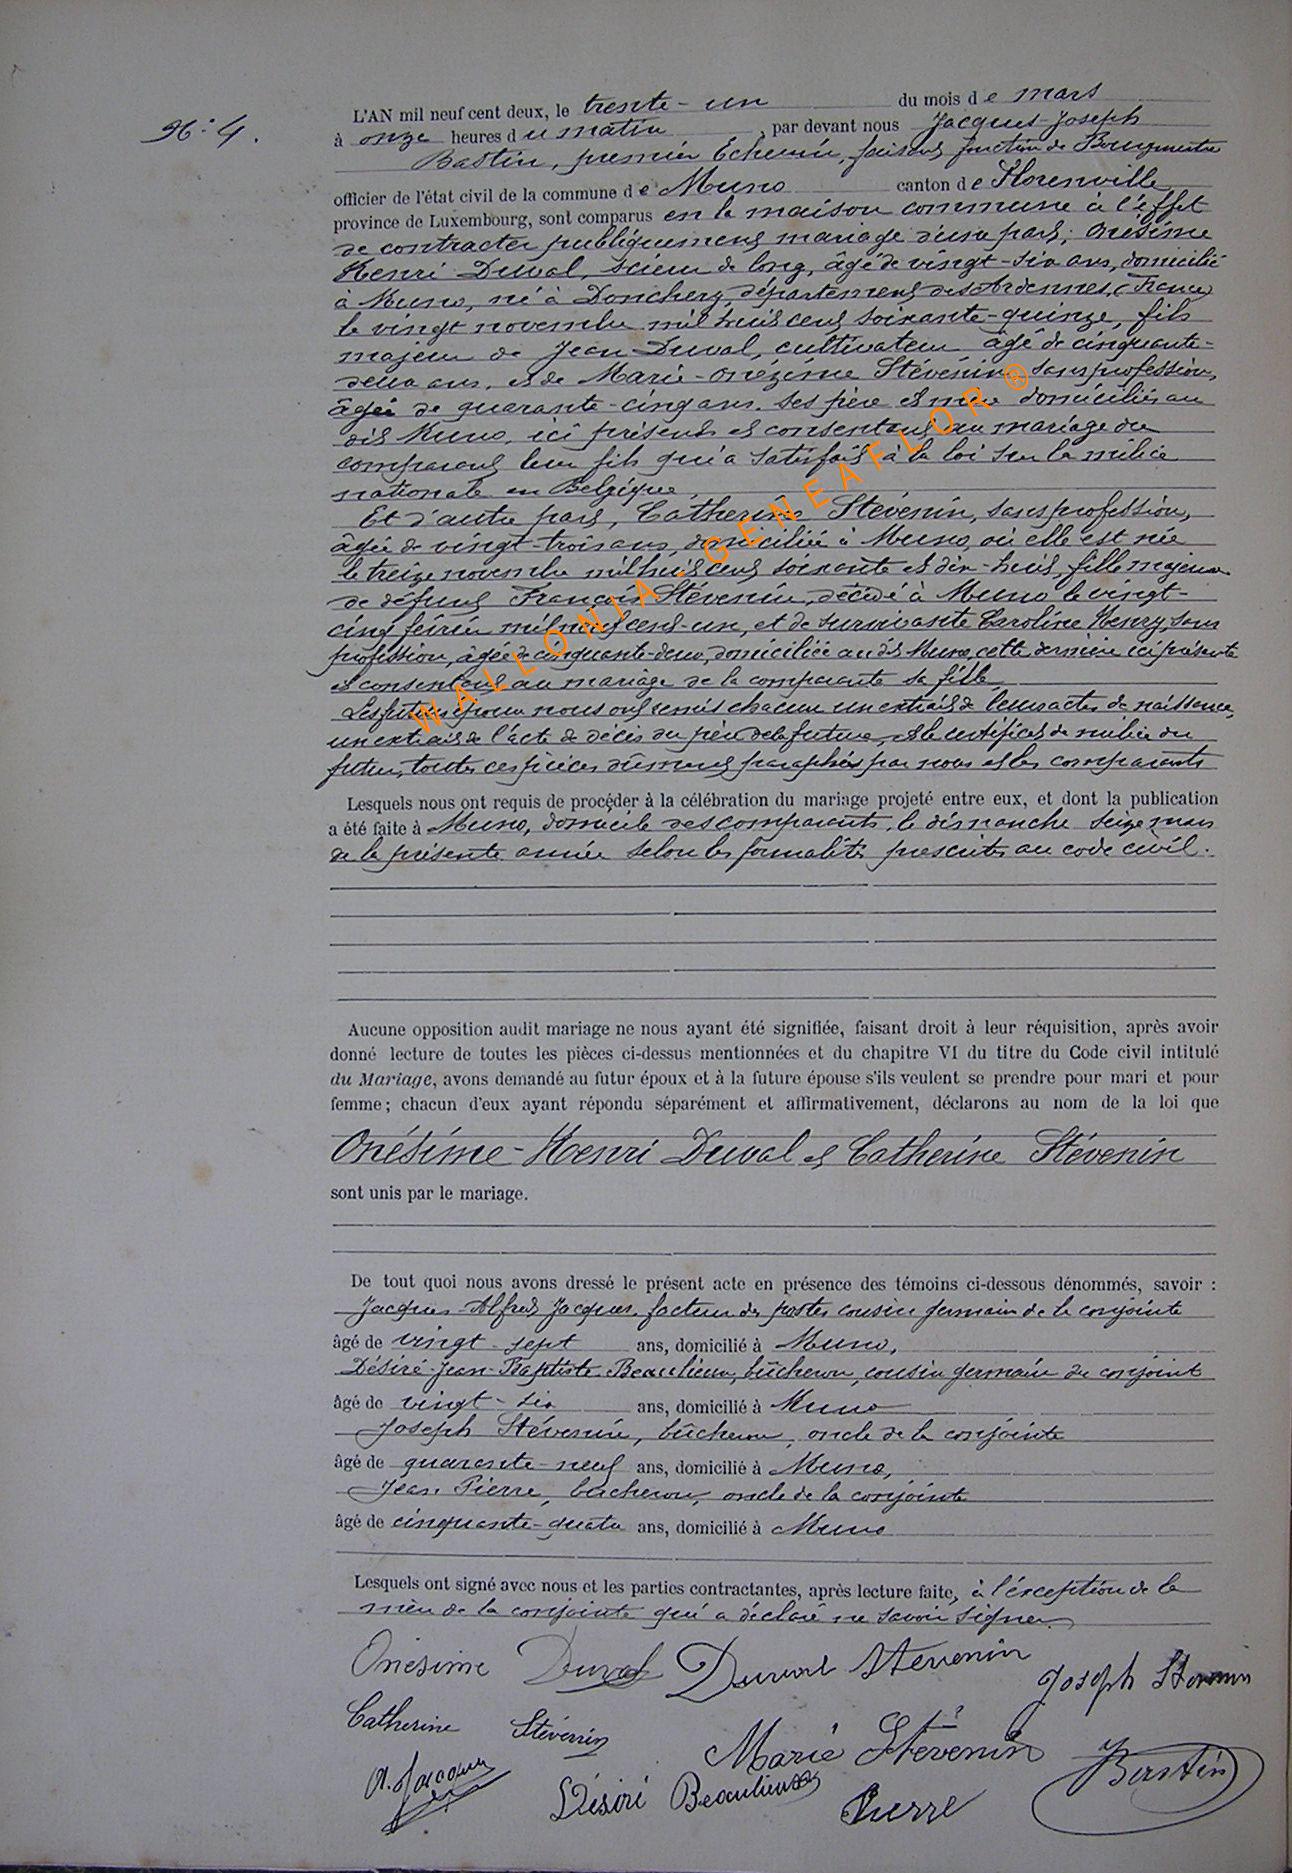 N.° 4.
L'AN mil neuf cent deux, le trente-un du mois de mars
à onze heures du matin, par devant nous Jacques-Joseph
Bastin, premier Échevin, faisant fonction de Bourgmestre
officier de l'état civil de la commune de Muno canton de Florenville
province de Luxembourg, sont comparus en la maison commune à l'effet
de contracter publiquement mariage d'une part, Onésime
Henri Duval, scieur de long, âgé de vingt-six ans, domicilié
à Muno, né à Donchery, département des Ardennes, (France)
le vingt novembre mil huit cent soixante-quinze, fils
majeur de Jean Duval, cultivateur âgé de cinquante-
deux ans, et de Marie-Onézime Stévenin sans profession,
âgée de quarante-cinq ans. ses père et mère domiciliés au
dit Muno, ici présents et consentant au mariage du
comparant leur fils qui a satisfait à la loi sur la milice
nationale en Belgique,
Et d'autre part, Catherine Stévenin, sans profession,
âgée de vingt-trois ans, domiciliée à Muno, où elle est née
le treize novembre mil huit cent soixante et dix-huit, fille majeure
de défunt François Stévenin, décédé à Muno le vingt-
cinq février mil neuf cent-un, et de survivante Caroline Henry, sans
profession, âgée de cinquante-deux, domiciliée au dit Muno, cette dernière ici présente
et consentant au mariage de la comparante sa fille,
Les futurs époux nous ont remis chacun un extrait de leurs actes de naissance,
un extrait de l'acte de décès du père de la future, et le certificat de milice du
futur, toutes ces pièces dûment paraphées par nous et les comparants
Lesquels nous ont requis de procéder à la célébration du mariage projeté entre eux, et dont la publication
a été faite à Muno, domicile des comparants, le dimanche seize mars
de la présente année selon les formalités prescrites au code civil.
Aucune opposition audit mariage ne nous ayant été signifiée, faisant droit à leur réquisition, après avoir
donné lecture de toutes les pièces ci-dessus mentionnées et du chapitre VI du titre du Code civil intitulé
du Mariage, avons demandé au futur époux et à la future épouse s'ils veulent se prendre pour mari et pour
femme ; chacun d'eux ayant répondu séparément et affirmativement, déclarons au nom de la loi que
Onésime-Henri Duval et Catherine Stévenin
sont unis par le mariage.
De tout quoi nous avons dressé le présent acte en présence des témoins ci-dessous dénommés, savoir :
Jacques-Alfred Jacques, facteur des postes cousin germain de la conjointe
âgé de vingt-sept ans, domicilié à Muno,
Désiré-Jean-Baptiste Beaulieux, bûcheron, cousin germain du conjoint
âgé de vingt-six ans, domicilié à Muno
Joseph Stévenin, bûcheron, oncle de la conjointe
âgé de quarante-neuf ans, domicilié à Muno,
Jean Pierre, bucheron, oncle de la conjointe
âgé de cinquante-quatre ans, domicilié à Muno
Lesquels ont signé avec nous et les parties contractantes, après lecture faite, à l'exception de la
mère de la conjointe qui a déclaré ne savoir signer.
Onésime Duval Duval Stevenin Joseph Stevenin
Catherine Stévenin Marie Stévenin Bastin
A. Jacques Désiré Beaulieux Pierre
WALLONIA-GENEAFLOR®